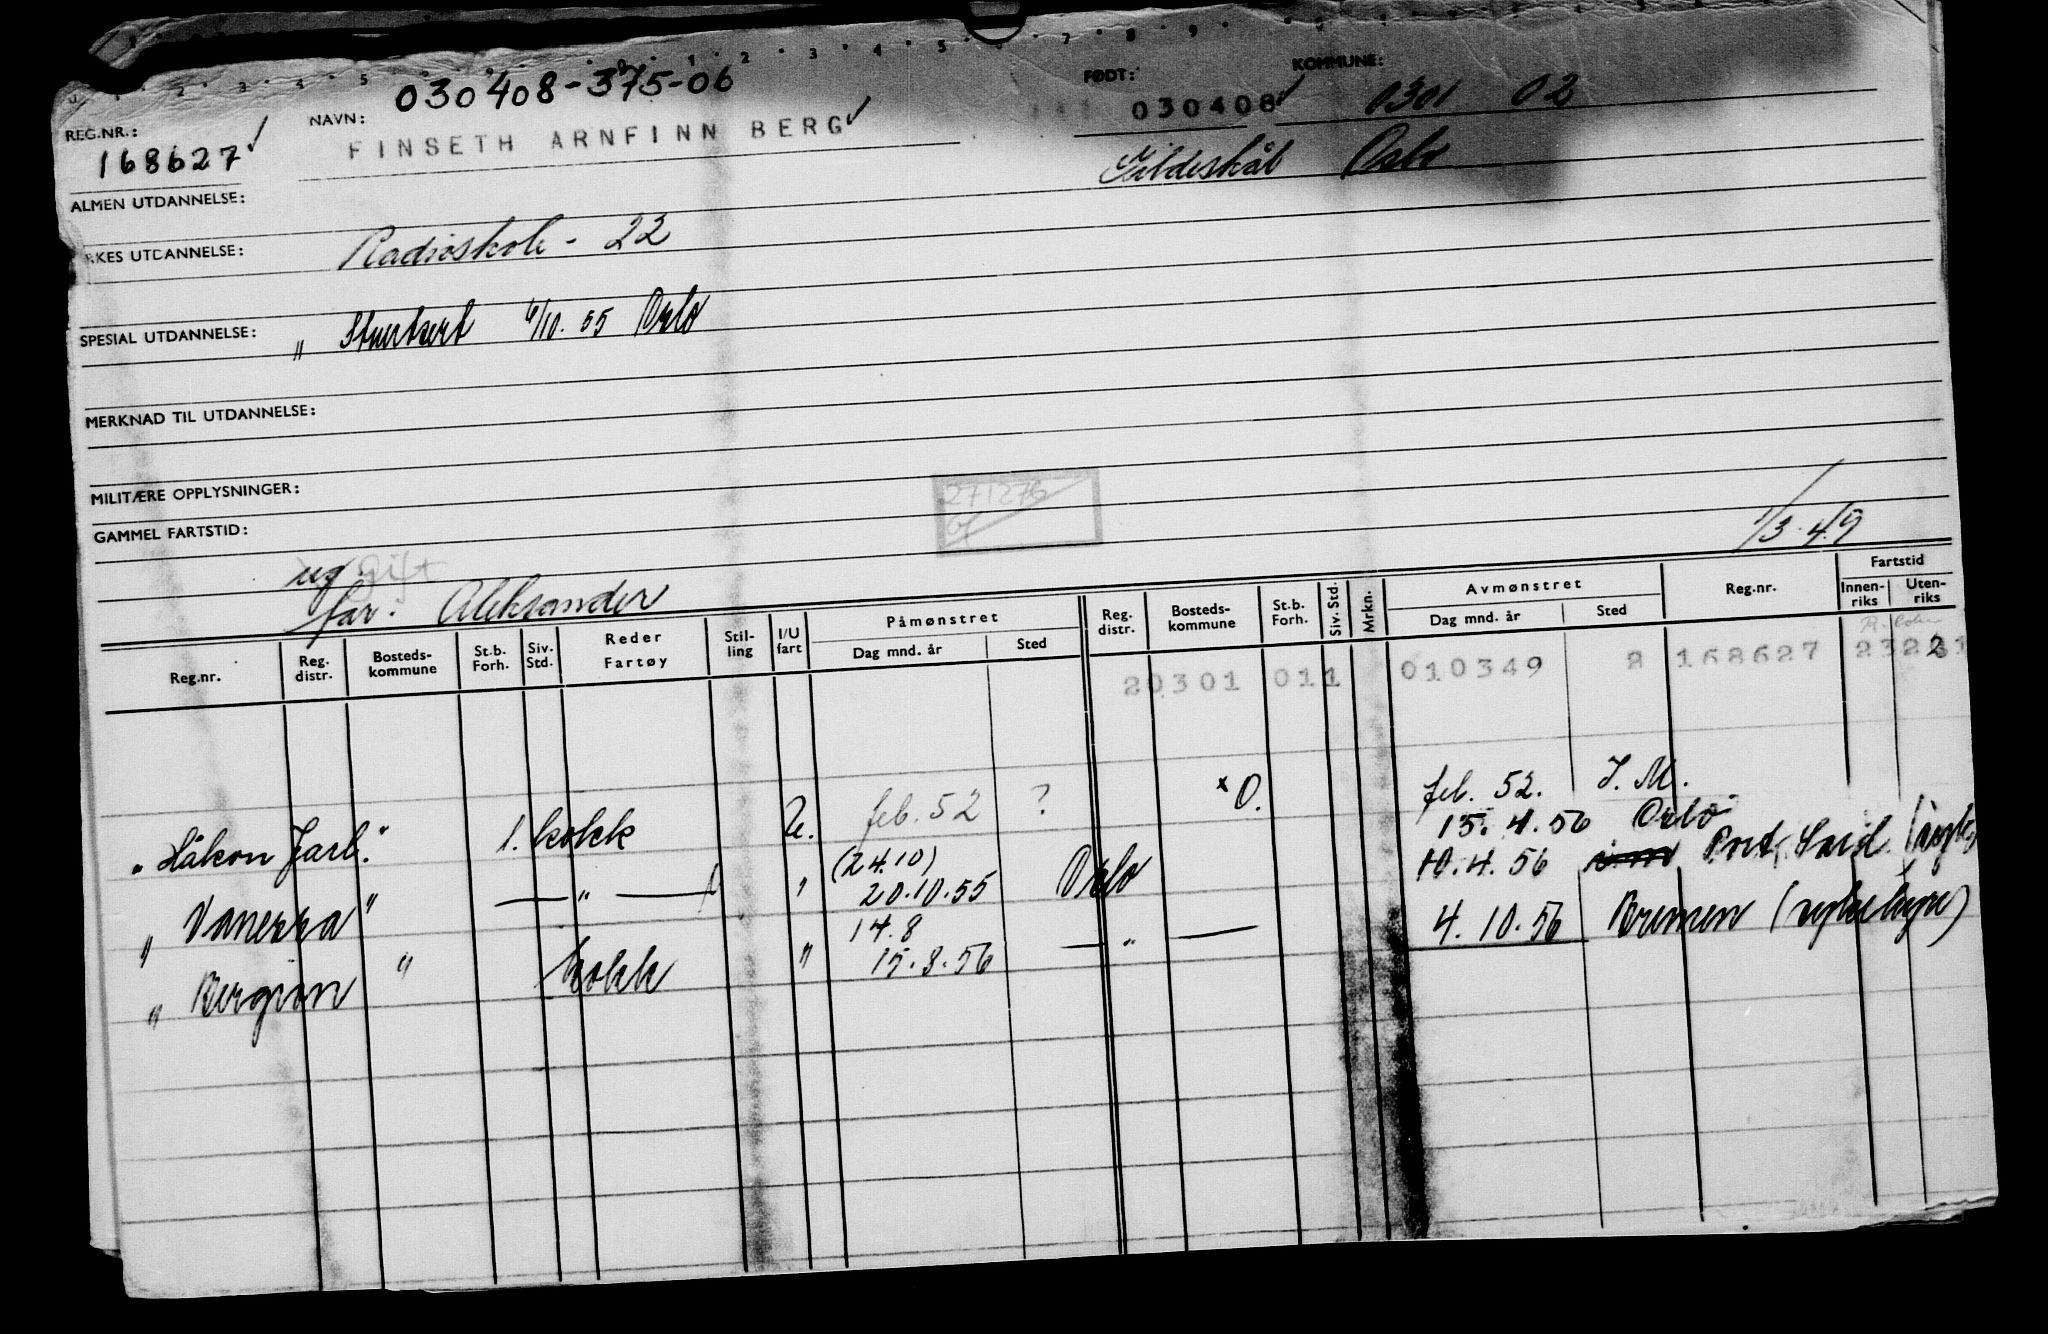 030408-375-06
FØDT: KOMMUNE:
REG.NR.: NAVN: 030408 0301 02
168627 FINSETH ARNFINN BERG
Gildeskål Oslo
ALMEN UTDANNELSE:
RKES UTDANNELSE: Radioskole - 22
SPESIAL UTDANNELSE: " Stuertsert 6/10. 55 Oslo
MERKNAD TIL UTDANNELSE:
MILITÆRE OPPLYSNINGER: 271276
GAMMEL FARTSTID:
1/3-49
ug. Gift
far. Aleksander
Reg.nr. Reg. distr. Bosteds- kommune St.b. Forh. Siv. Std. Reder Fartøy Stil- ling I/U fart Påmønstret Dag mnd. år Sted Reg. distr. Bosteds- kommune St.b. Forh. Siv. Std. Mrkn. Avmønstret Dag mnd. år Sted Reg.nr. Fartstid Innen- riks Uten- riks
20301 011 010349 2 168627
"Håkon Jarl" 1. kokk U. feb. 52 ? x O. feb. 52. J. M.
15. 4. 56 Oslo
"Vanessa" — " — " (24.10) 20.10.55 Oslo 10.4.56 Port Said
"Bergson" kokk " 14.8 15.8.56 — " — 4.10.56 Bremen (sykehus)